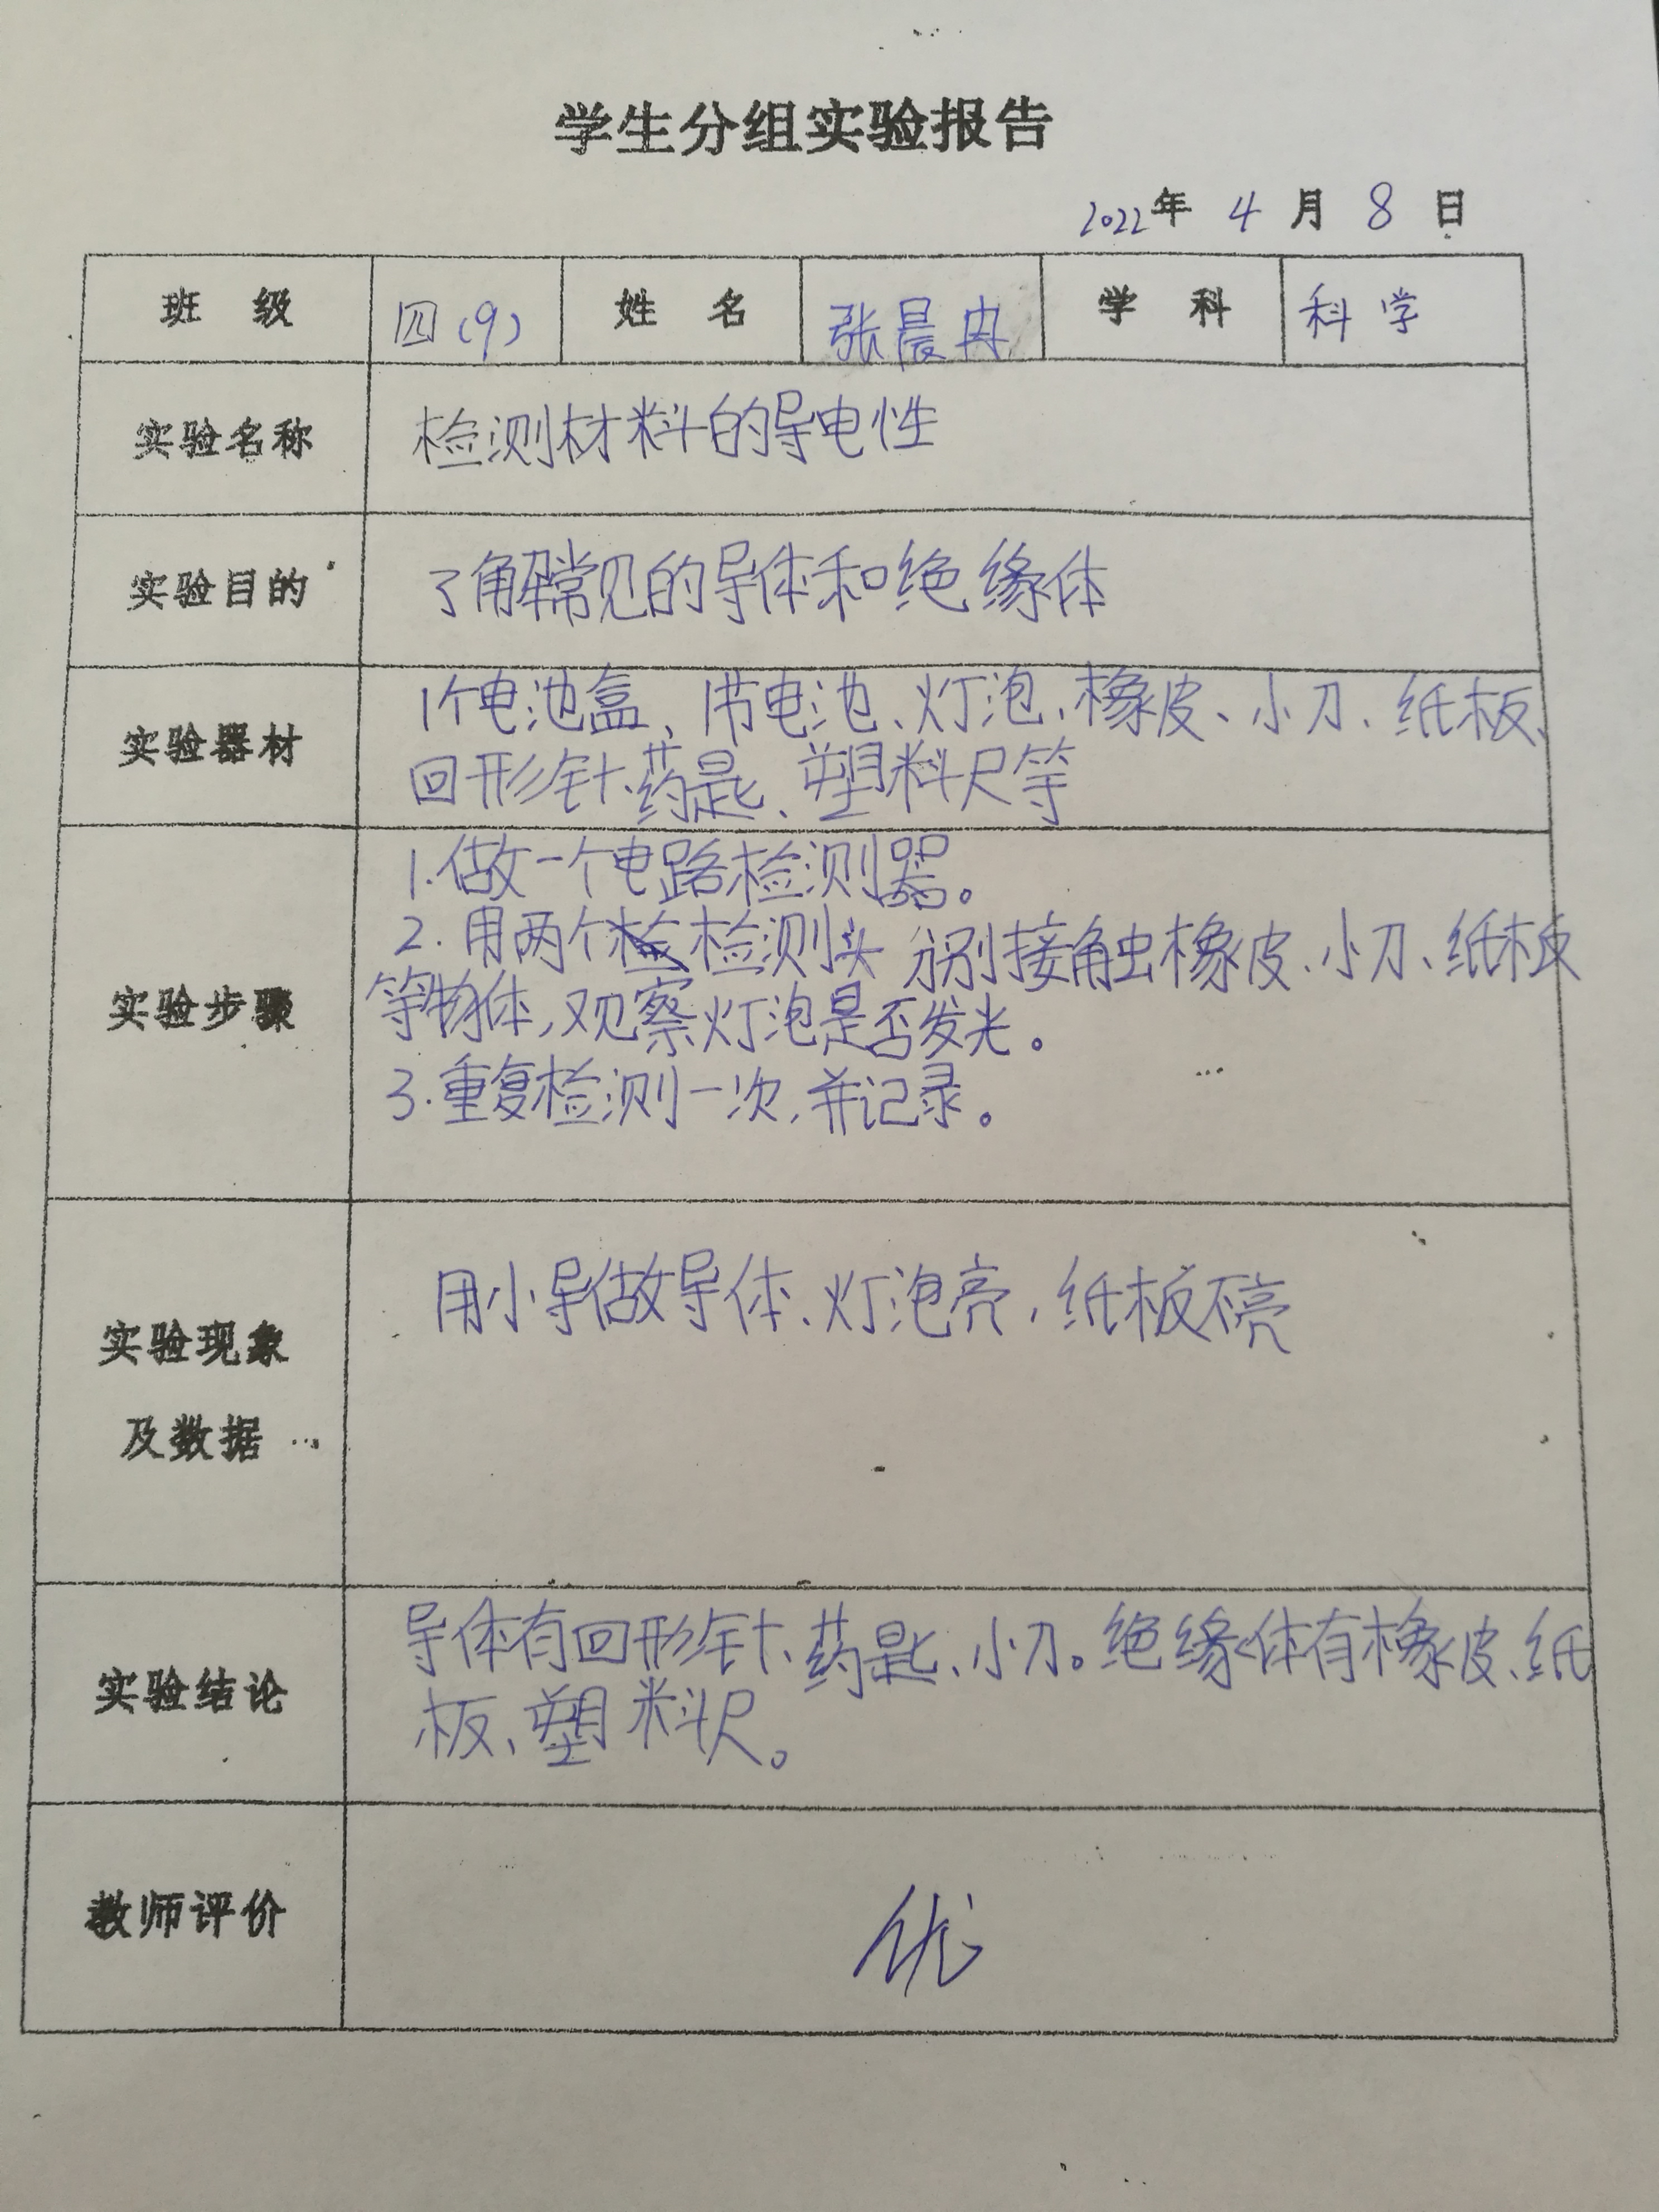 学生分组实验报告
2022年 4 月 8 日
班 级 四(9) 姓 名 张晨冉 学 科 科学
实验名称 检测材料的导电性
实验目的 了解常见的导体和绝缘体
实验器材 1个电池盒、1节电池、灯泡、橡皮、小刀、纸板、
回形针、药匙、塑料尺等
1.做一个电路检测器。
2.用两个检测头 分别接触橡皮、小刀、纸板
实验步骤 等物体,观察灯泡是否发光。
3.重复检测一次,并记录。
用小导做导体、灯泡亮,纸板不亮
实验现象
及数据
导体有回形针、药匙、小刀。绝缘体有橡皮、纸
实验结论 板、塑料尺。
教师评价 优